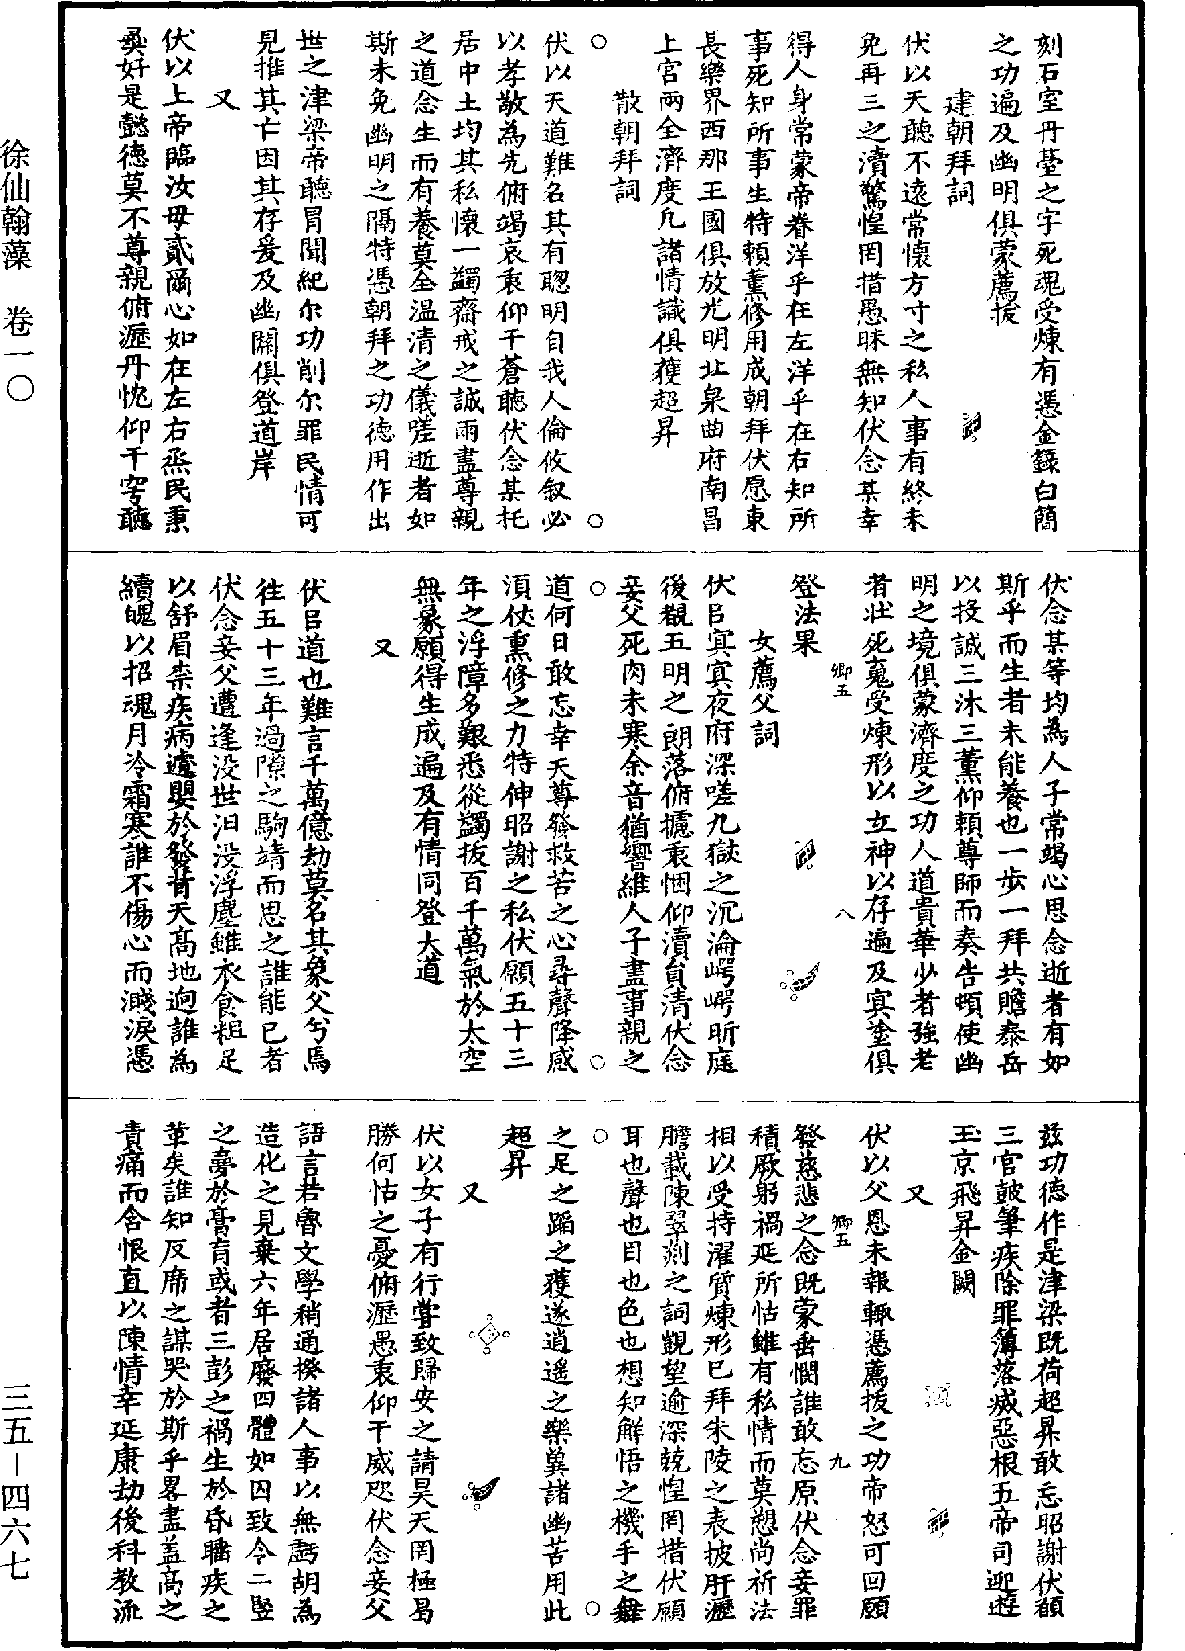 徐仙翰藻　卷一〇
三五－四六七
刻石室丹臺之字死魂受煉有憑金籙白簡
之功遍及幽明俱蒙薦拔
建朝拜詞
伏以天聽不遠常懷方寸之私人事有終未
免再三之瀆驚惶罔措愚昧無知伏念某幸
得人身常蒙帝眷洋乎在左洋乎在右知所
事死知所事生特賴薰修用成朝拜伏愿東
長樂界西那王國俱放光明北泉曲府南昌
上宮兩全濟度凡諸情識俱獲超昇
散朝拜詞
○　○
伏以天道難名其有聰明自我人倫攸叙必
以孝敬為先俯竭哀衷仰干蒼聽伏念某托
居中土均其私懷一蠲齋戒之誠兩盡尊親
之道念生而有養奠全温清之儀嗟逝者如
斯未免幽明之隔特憑朝拜之功德用作出
世之津梁帝聽冒聞紀尔功削尔罪民情可
見推其亡因其存爰及幽關俱登道岸
又
伏以上帝臨汝毋貳爾心如在左右烝民秉
彝好是懿德莫不尊親俯瀝丹忱仰干穹聽
伏念某等均為人子常竭心思念逝者有如
斯乎而生者未能養也一步一拜共瞻泰岳
以投誠三沐三薰仰賴尊師而奏告頓使幽
明之境俱蒙濟度之功人道貴華少者強老
者壯死䰟受煉形以立神以存遍及冥塗俱
卿五　八
登法果
女薦父詞
伏㠯冥冥夜府深嗟九獄之沉淪崿崿昕庭
後覩五明之朗落俯攄衷悃仰瀆負清伏念
妾父死肉未寒余音猶響維人子盡事親之
○　○
道何日敢忘幸天尊發救苦之心尋聲降感
須伎熏修之力特伸昭謝之私伏願五十三
年之浮障多艱悉從蠲拔百千萬氣於太空
無象願得生成遍及有情同登大道
又
伏㠯道也難言千萬億劫莫名其象父兮焉
徃五十三年過隙之駒靖而思之誰能已者
伏念妾父遭逢没世汨没浮塵雖衣食粗足
以舒眉柰疾病遽嬰於發背天高地迥誰為
續魄以招魂月冷霜寒誰不傷心而濺淚憑
兹功德作是津梁既荷超昇敢忘昭謝伏願
三官皷筆疾除罪簿落滅惡根五帝司迎遊
玉京飛昇金闕
又
伏以父恩未報輙憑薦拔之功帝怒可回願
卿五　九
發慈悲之念既蒙垂憫誰敢忘原伏念妾罪
積厥躬禍延所怙雖有私情而莫愬尚祈法
相以受持濯質煉形已拜朱陵之表披肝瀝
膽載陳翠剡之詞觀望逾深兢惶罔措伏願
耳也聲也目也色也想知解悟之機手之舞
○　○
之足之蹈之獲遂逍遥之樂異諸幽苦用此
超昇
又
伏以女子有行嘗致歸安之請昊天罔極曷
勝何怙之憂俯瀝愚衷仰干威咫伏念妾父
語言若魯文學稍通揆諸人事以無虧胡為
造化之見棄六年居廢四體如囚致令二竪
之夢於膏肓或者三彭之禍生於昏瞶疾之
革矣誰知反席之謀哭於斯乎畧盡盖高之
責痛而含恨直以陳情幸延康劫後科教流